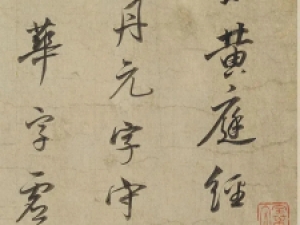 黄庭經
丹元字守
華字虚